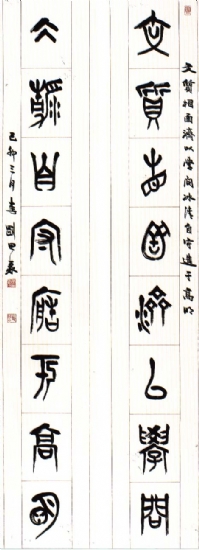 文質相面濟以學問冰清自守造于高明
文質相面濟以學問
冰清自守造于高明
己卯三月書劉